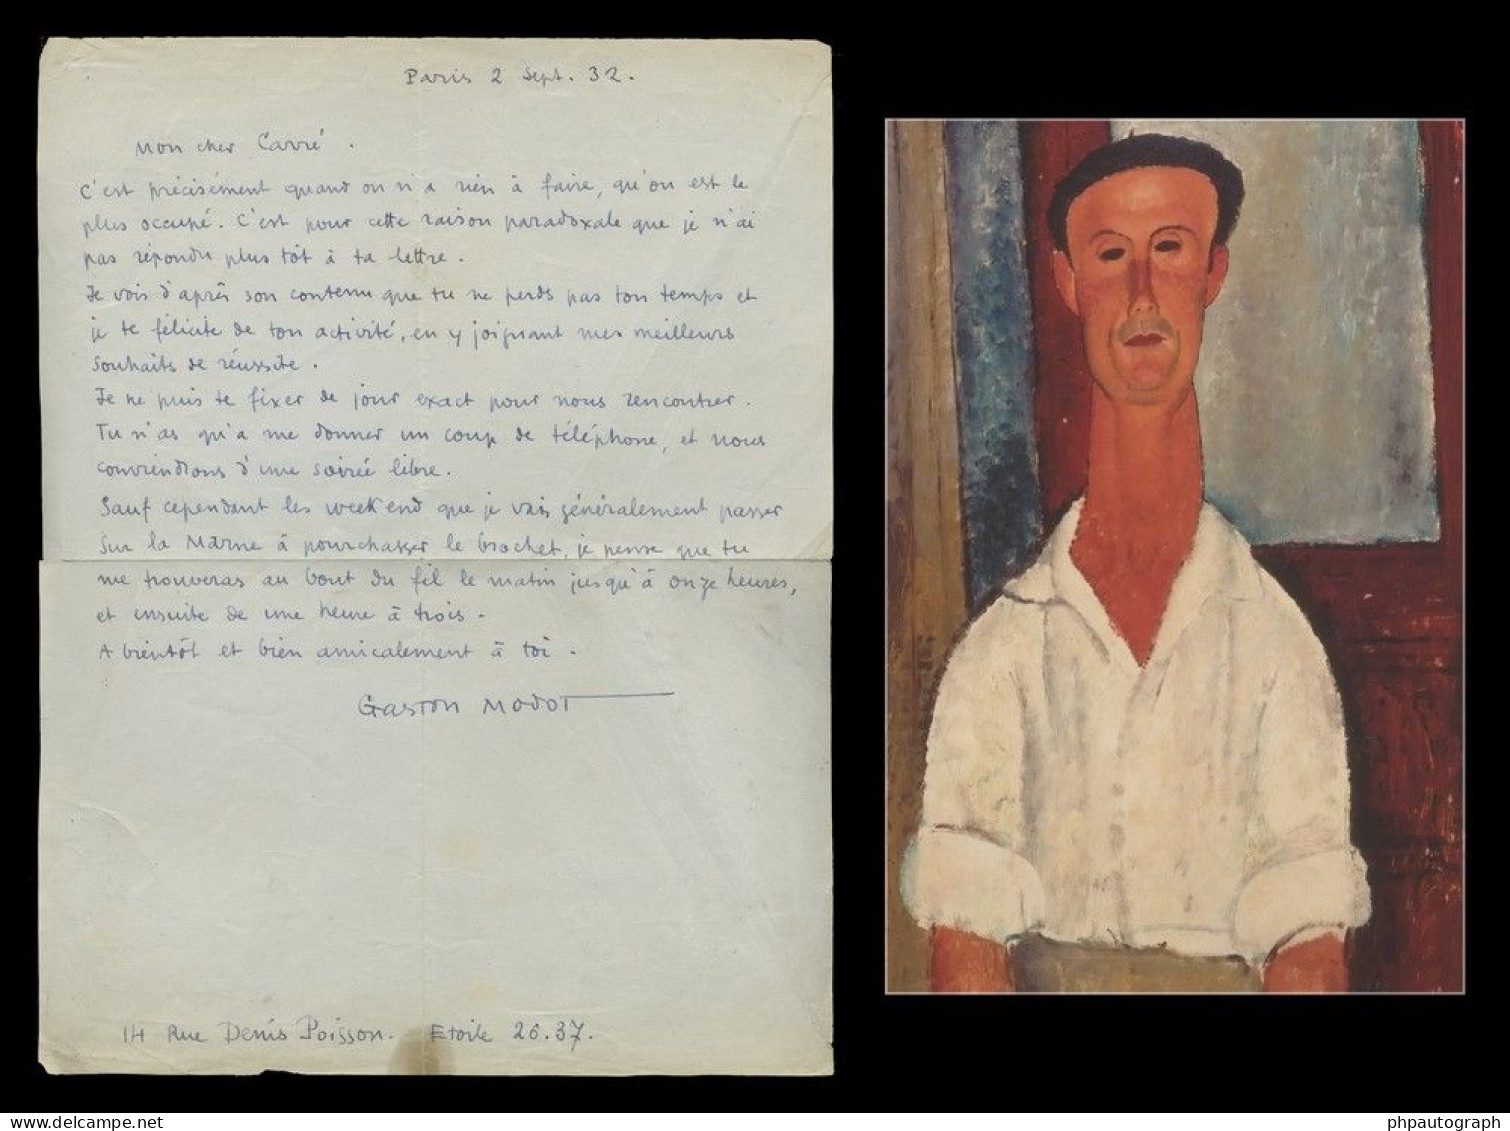 Paris 2 Sept. 32.
Mon cher Carré.
C'est précisément quand on n'a rien à faire, qu'on est le
plus occupé. C'est pour cette raison paradoxale que je n'ai
pas répondu plus tôt à ta lettre.
Je vois d'après son contenu que tu ne perds pas ton temps et
je te félicite de ton activité, en y joignant mes meilleurs
souhaits de réussite.
Je ne puis te fixer de jour exact pour nous rencontrer.
Tu n'as qu'a me donner un coup de téléphone, et nous
conviendrons d'une soirée libre.
Sauf cependant les week end que je vais généralement passer
sur la Marne à pourchasser le brochet, je pense que tu
me trouveras au bout du fil le matin jusqu'à onze heures,
et ensuite de une heure à trois.
A bientôt et bien amicalement à toi.
Gaston Modot
14 Rue Denis Poisson. Etoile 26.37.
delcampe.net
phpautograph